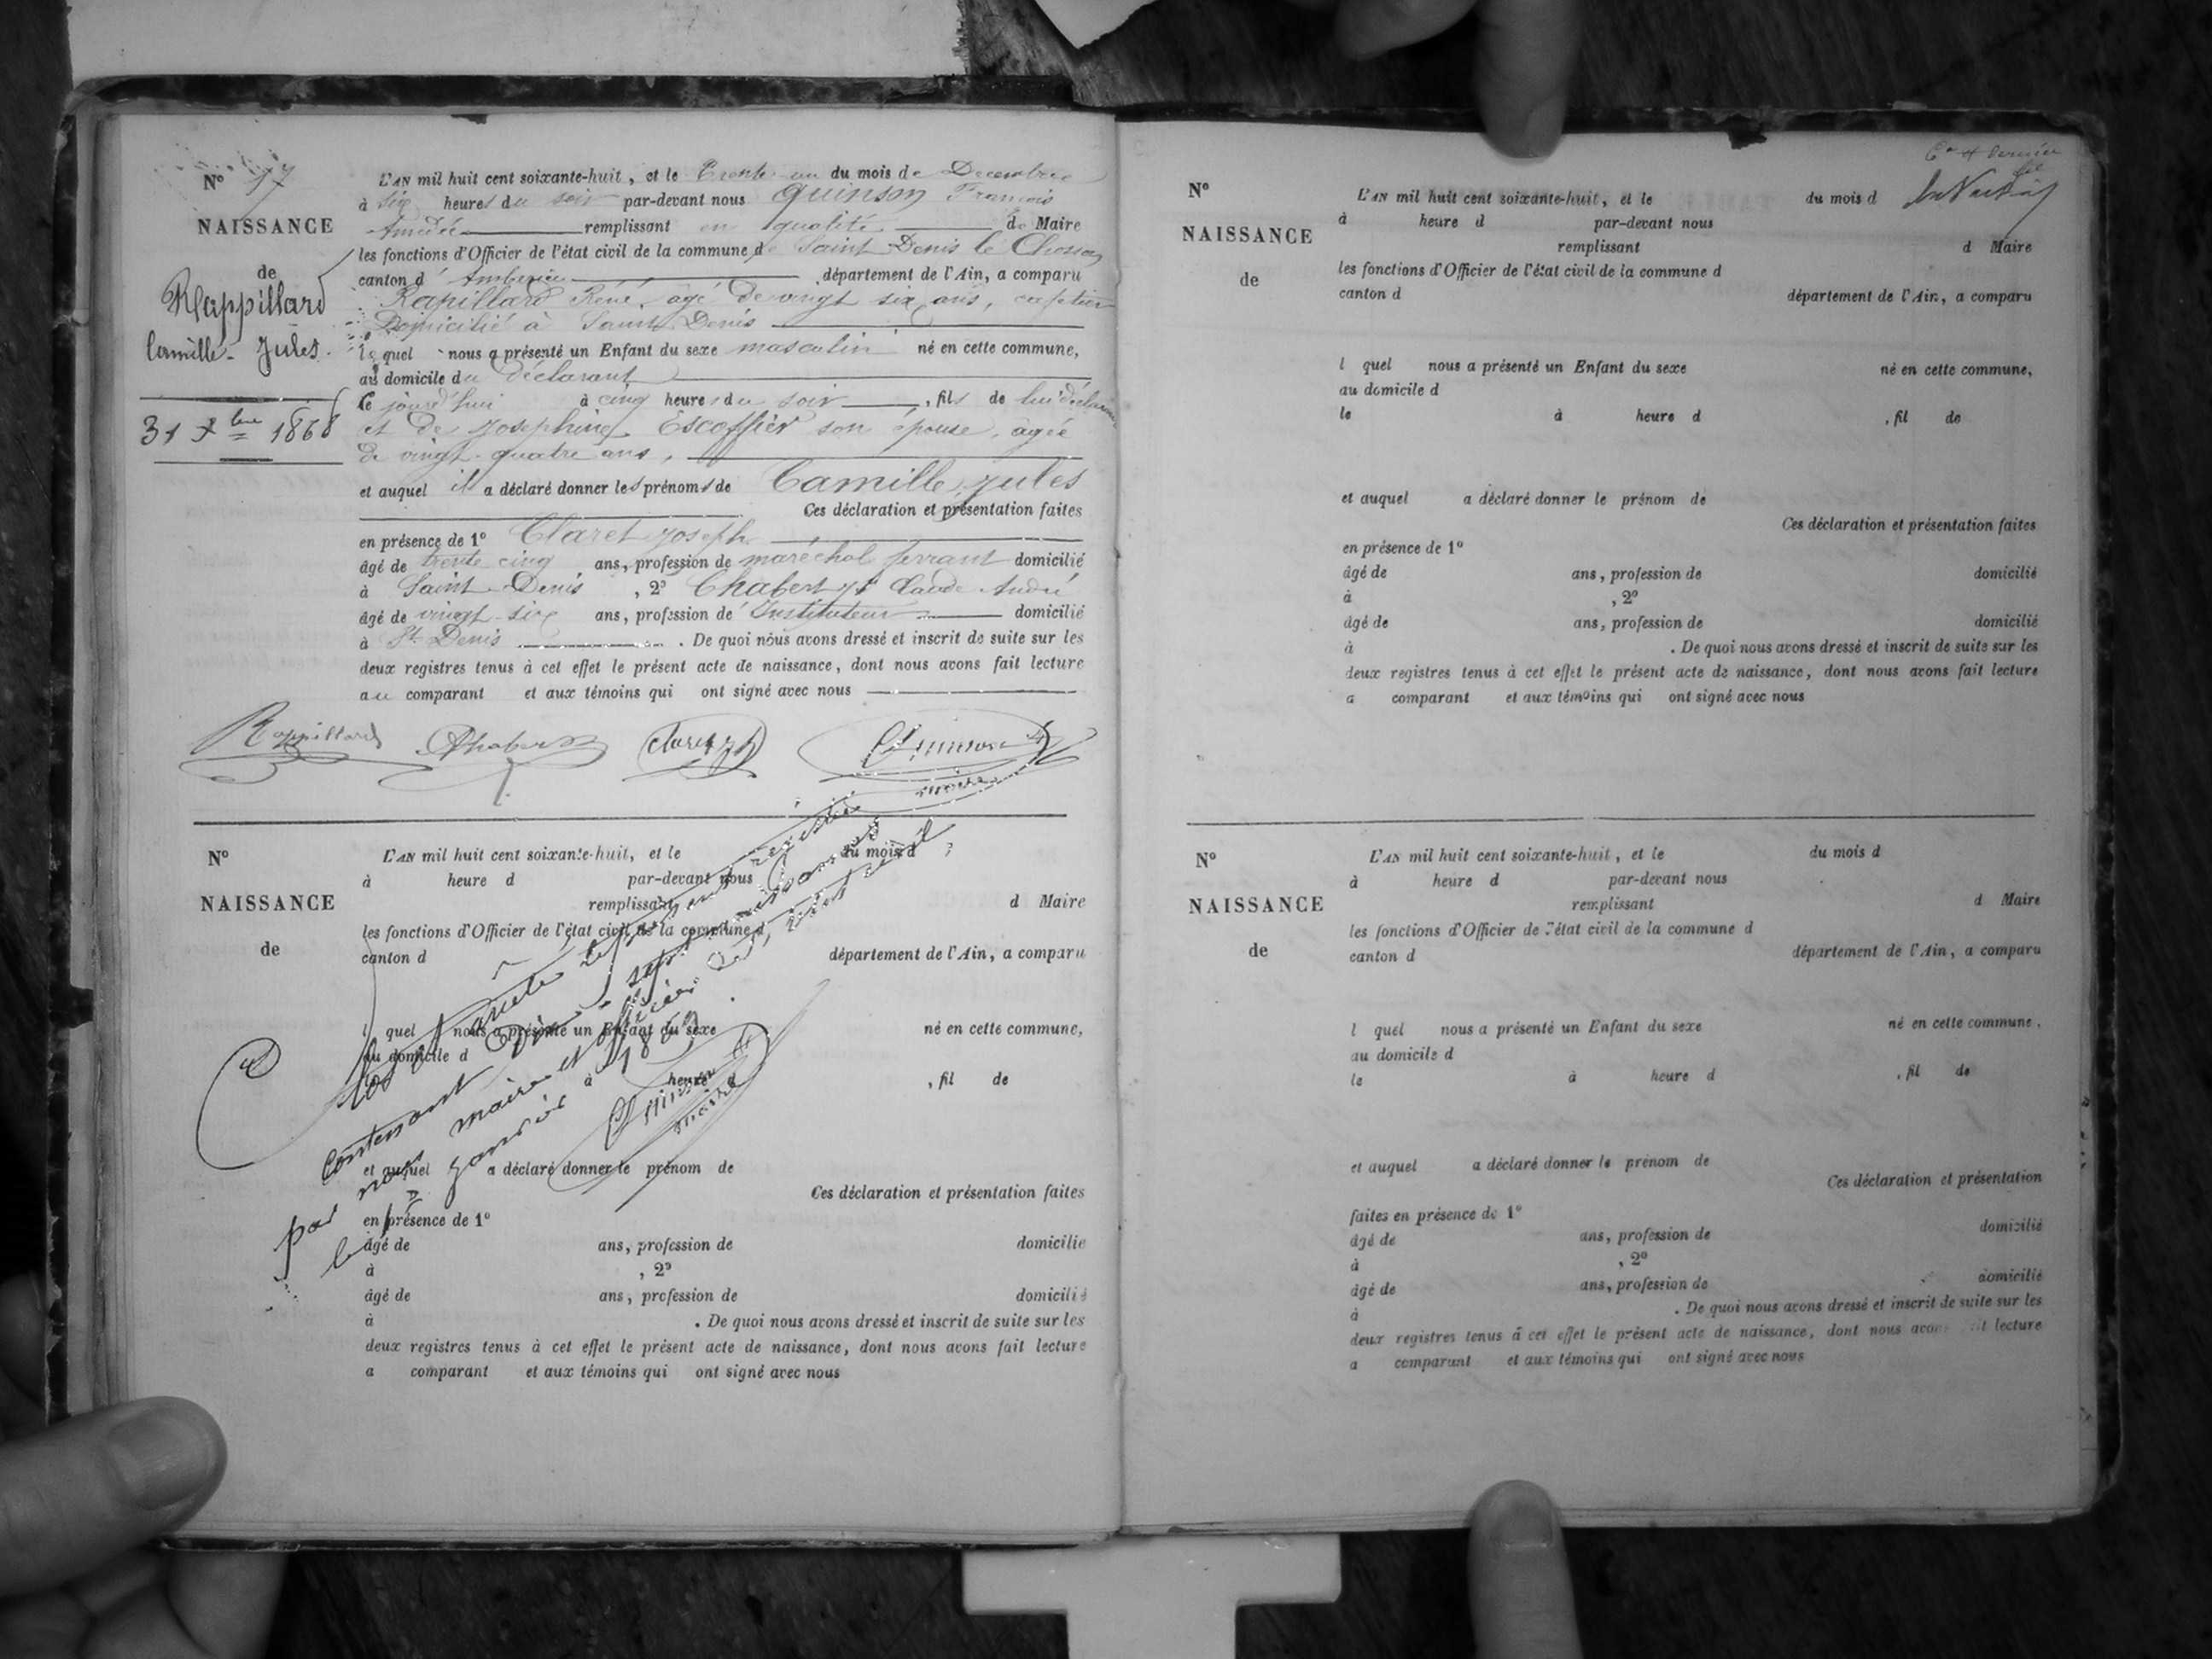 N° 17
NAISSANCE
de
Rappillard
Camille-Jules.
31 Xbre 1868
L'AN mil huit cent soixante-huit, et le Trente-un du mois de Decembre
à six heures du soir par-devant nous Quinson François
Amédée remplissant en qualité de Maire
les fonctions d'Officier de l'état civil de la commune de Saint Denis le Chosson
canton d' Ambérieu département de l'Ain, a comparu
Rapillard René, âgé de vingt six ans, cafetier
Domicilié à Saint Denis
lequel nous a présenté un Enfant du sexe masculin né en cette commune,
au domicile du Déclarant
le jourd'hui à cinq heures du soir, fils de lui déclarant
et de Joséphine Escoffier son épouse, âgée
de vingt-quatre ans,
et auquel il a déclaré donner les prénoms de Camille, Jules
Ces déclaration et présentation faites
en présence de 1° Claret Joseph
âgé de trente cinq ans, profession de maréchal ferrant domicilié
à Saint-Denis, 2° Chabert Claude André
âgé de vingt-six ans, profession de Instituteur domicilié
à St Denis. De quoi nous avons dressé et inscrit de suite sur les
deux registres tenus à cet effet le présent acte de naissance, dont nous avons fait lecture
au comparant et aux témoins qui ont signé avec nous
Rappillard Chabert Claret Quinson
maire
N°
NAISSANCE
de
L'AN mil huit cent soixante-huit, et le du mois d
à heure d par-devant nous
remplissant d Maire
les fonctions d'Officier de l'état civil de la commune d
canton d département de l'Ain, a comparu
l quel nous a présenté un Enfant du sexe né en cette commune,
au domicile d
le à heure d , fil de
et auquel a déclaré donner le prénom de
Ces déclaration et présentation faites
en présence de 1°
âgé de ans, profession de domicilié
à , 2°
âgé de ans, profession de domicilié
à . De quoi nous avons dressé et inscrit de suite sur les
deux registres tenus à cet effet le présent acte de naissance, dont nous avons fait lecture
a comparant et aux témoins qui ont signé avec nous
Clos et arrêté le présent registre
Contenant Dix-sept naissances
par nous maire et officier de l'état civil
le 1er janvier 1869.
Quinson
maire
dernier
N°
NAISSANCE
de
L'AN mil huit cent soixante-huit, et le du mois d
à heure d par-devant nous
remplissant d Maire
les fonctions d'Officier de l'état civil de la commune d
canton d département de l'Ain, a comparu
l quel nous a présenté un Enfant du sexe né en cette commune,
au domicile d
le à heure d , fil de
et auquel a déclaré donner le prénom de
Ces déclaration et présentation faites
en présence de 1°
âgé de ans, profession de domicilié
à , 2°
âgé de ans, profession de domicilié
à . De quoi nous avons dressé et inscrit de suite sur les
deux registres tenus à cet effet le présent acte de naissance, dont nous avons fait lecture
a comparant et aux témoins qui ont signé avec nous
N°
NAISSANCE
de
L'AN mil huit cent soixante-huit, et le du mois d
à heure d par-devant nous
remplissant d Maire
les fonctions d'Officier de l'état civil de la commune d
canton d département de l'Ain, a comparu
l quel nous a présenté un Enfant du sexe né en cette commune.
au domicile d
le à heure d , fil de
et auquel a déclaré donner le prénom de
Ces déclaration et présentation
faites en présence de 1°
âgé de ans, profession de domicilié
à , 2°
âgé de ans, profession de domicilié
à . De quoi nous avons dressé et inscrit de suite sur les
deux registres tenus à cet effet le présent acte de naissance, dont nous avons fait lecture
a comparant et aux témoins qui ont signé avec nous